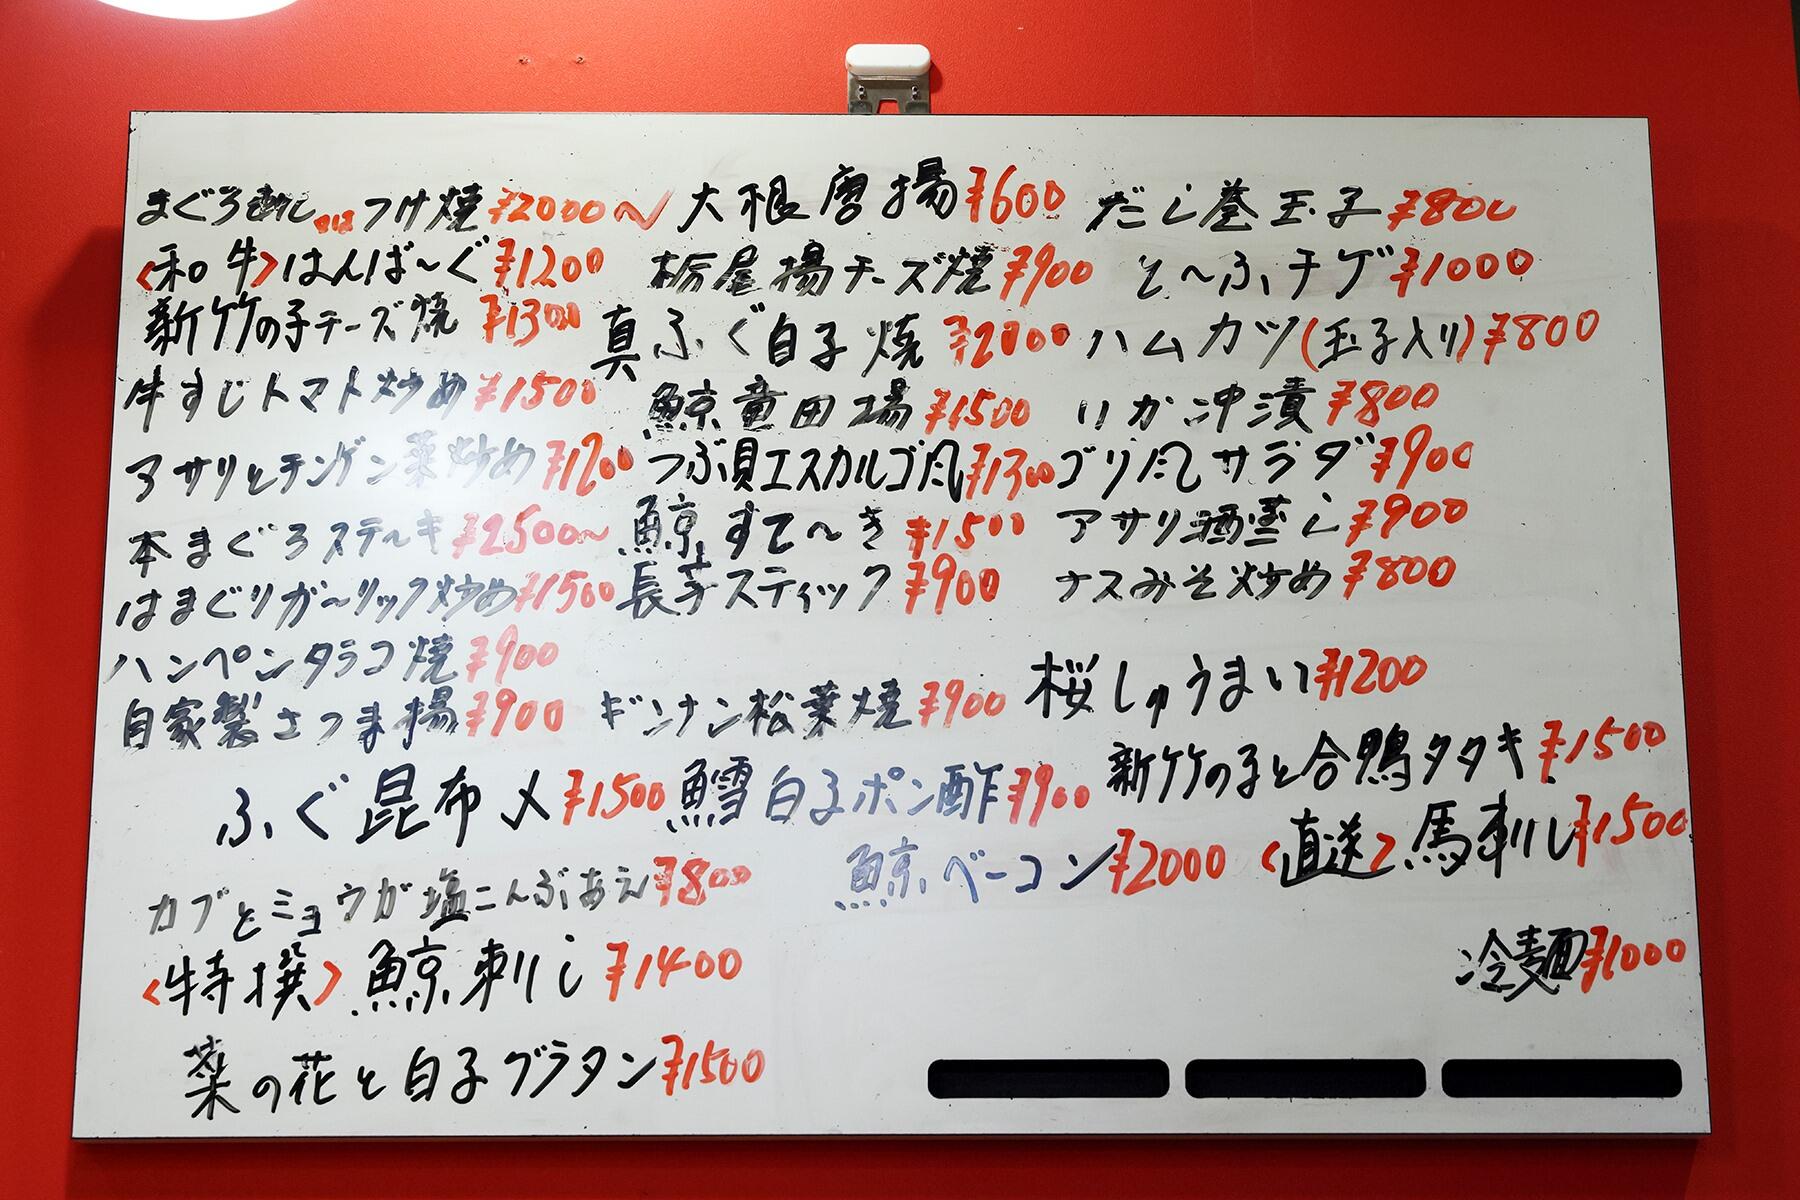 まぐろ刺し または つけ焼 ¥2000〜
〈和牛〉はんば〜ぐ ¥1200
新竹の子チーズ焼 ¥1300
牛すじトマト炒め ¥1500
アサリとチンゲン菜炒め ¥1200
本まぐろステーキ ¥2500〜
はまぐりガーリック炒め ¥1500
ハンペンタラコ焼 ¥900
自家製さつま揚 ¥900
ふぐ昆布〆 ¥1500
カブとミョウガ塩こんぶあえ ¥800
〈特撰〉鯨刺し ¥1400
菜の花と白子グラタン ¥1500
大根唐揚 ¥600
栃尾揚チーズ焼 ¥900
真ふぐ白子焼 ¥2000
鯨竜田揚 ¥1500
つぶ貝エスカルゴ風 ¥1300
鯨すて〜き ¥1500
長芋スティック ¥900
ギンナン松葉焼 ¥900
鱈白子ポン酢 ¥900
鯨ベーコン ¥2000
だし巻玉子 ¥800
と〜ふチゲ ¥1000
ハムカツ(玉子入り) ¥800
いか沖漬 ¥800
ゴリ風サラダ ¥900
アサリ酒蒸し ¥900
ナスみそ炒め ¥800
桜しゅうまい ¥1200
新竹の子と合鴨タタキ ¥1500
〈直送〉馬刺し ¥1500
冷麺 ¥1000